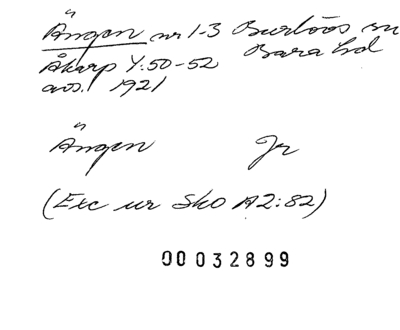 Ängen nr 1-3 Burlövs sn
Åkarp Y:50-52 Bara hd
avs. 1921
Ängen Jr
(Exc ur Sko A2:82)
00032899